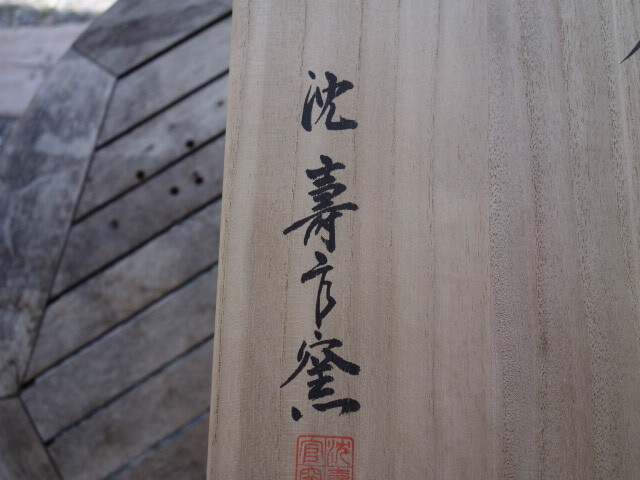 沈壽官窯